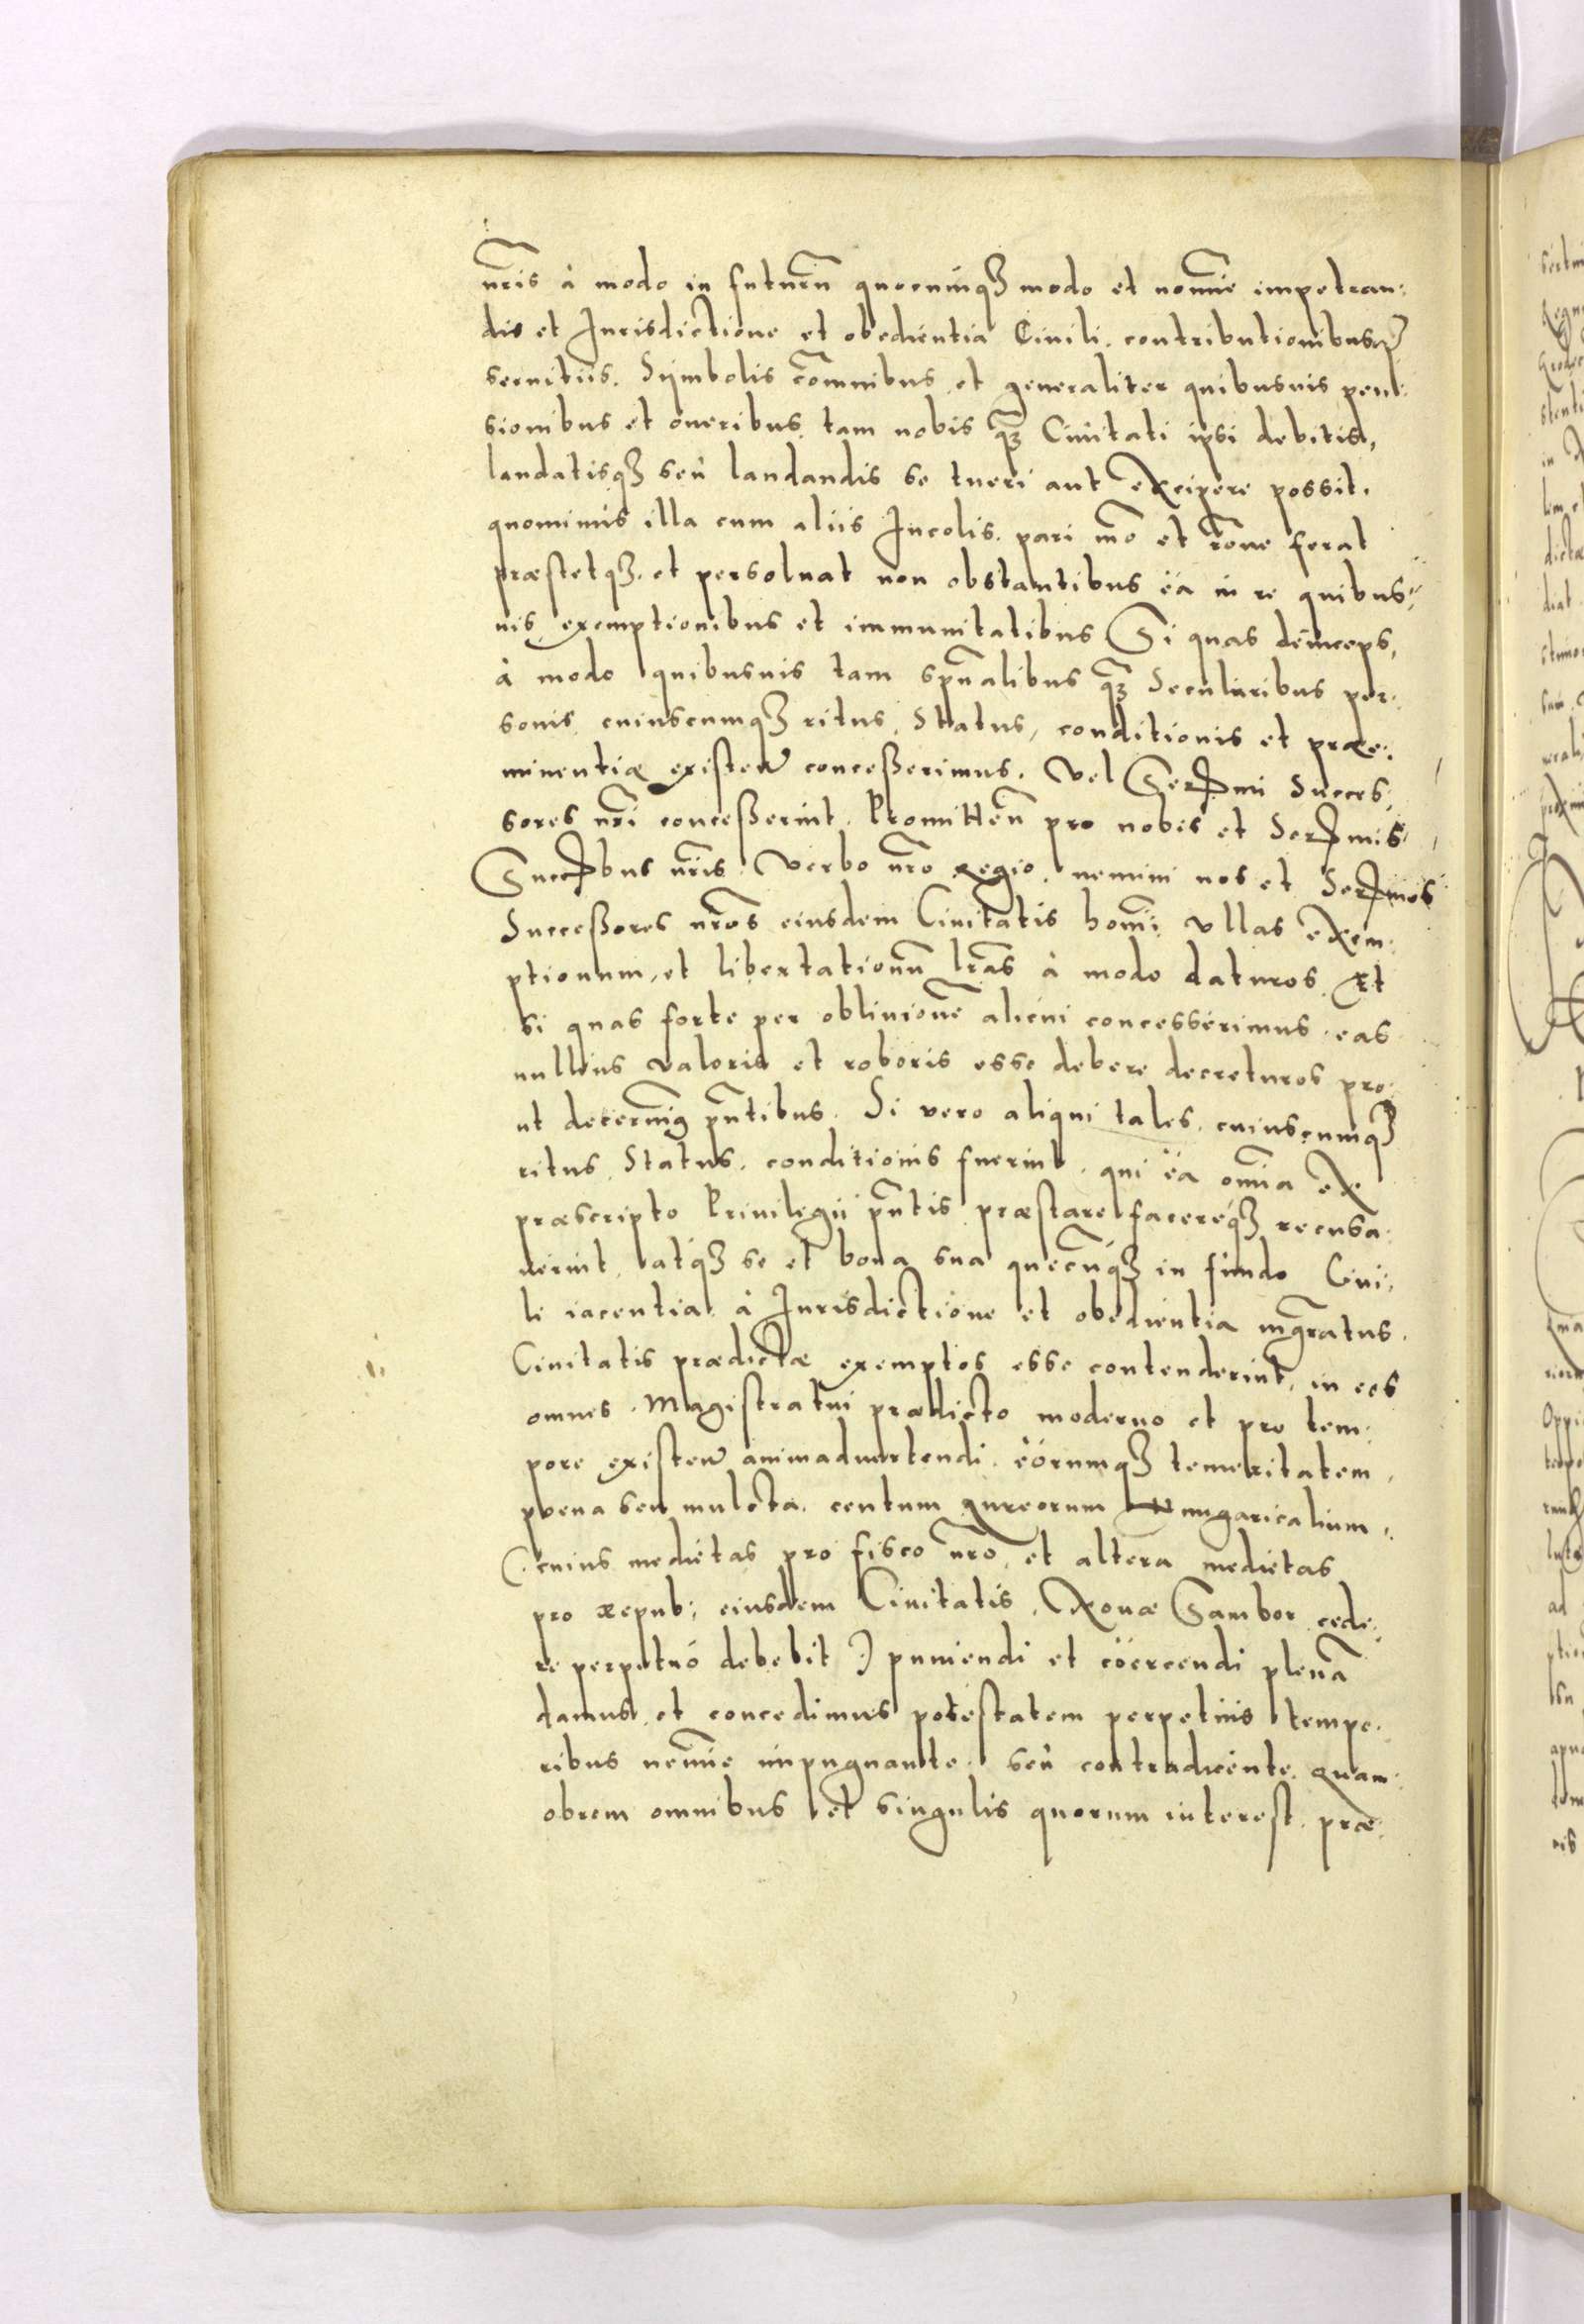 nr̃is à modo in futurũ quocunq̃ꝫ modo et nomĩe impetran:
dis et Jurisdictione et obedientia Civili. contributionibusqꝫ
servitiis. Sÿmbolis c̃omnibus et generaliter quibusvis pen:
sionibus et oneribus tam nobis q̃ꝫ Civitati ipsi debitis,
laudatisqꝫ seù laudandis se tueri aut excipere possit.
quominùs illa cum aliis Incolis. pari mõ et rõne ferat
præstetqꝫ. et persolvat non obstantibus ëa in re quibus:
vis exemptionibus et immunitatibus Si quas deinceps,
à modo quibusvis tam spũalibus q̃ꝫ Secularibus per:
sonis cuiuscumqꝫ ritus, Status, conditionis et præe:
minentiæ existeñ conceßerimus. Vel Sermi Succes:
sores nr̃i conceßerint. Promitteñ pro nobis et Sermis
Succbus nr̃is verbo nr̃o Regio. nemini nos et Sermos
Succeßores nr̃os eiusdem Civitatis homĩ: ullas exem:
ptionum, et libertationũ lr̃as à modo daturos. Et
si quas forte per oblivionẽ alicui concesserimus. eas
nullius valoris et roboris esse debere decreturos pro:
ut decernimꝰ pñtibus. Si vero aliqui tales. cuiuscumqꝫ
ritus, Status. conditionis fuerint. qui ëa omñia ex
præscripto Privilegii pñtis præstare facereq́ꝫ recusa:
verint, atq́ꝫ se et bona sua quecũq́ꝫ in fundo Civi:
li iacentia à Jurisdictione et obedientia mg̃ratus.
Civitatis prædictæ exemptos esse contenderint, in eos
omnes. Magistratui prædicto moderno et pro tem:
pore existeñ animadvertendi. ëorumqꝫ temeritatem,
poena seu mulcta. centum aureorum Hungaricalium,
(: cuius medietas pro fisco nr̃o, et altera medietas
pro Repub: eiusdem Civitatis, Novæ Sambor cede:
re perpetuó debebit :) puniendi et cöercendi plenã
damus, et concedimus potestatem perpetuis tempo:
ribus nemĩe impugnante. seù contradicente. Quam:
obrem omnibus et singulis quorum interest. præ: